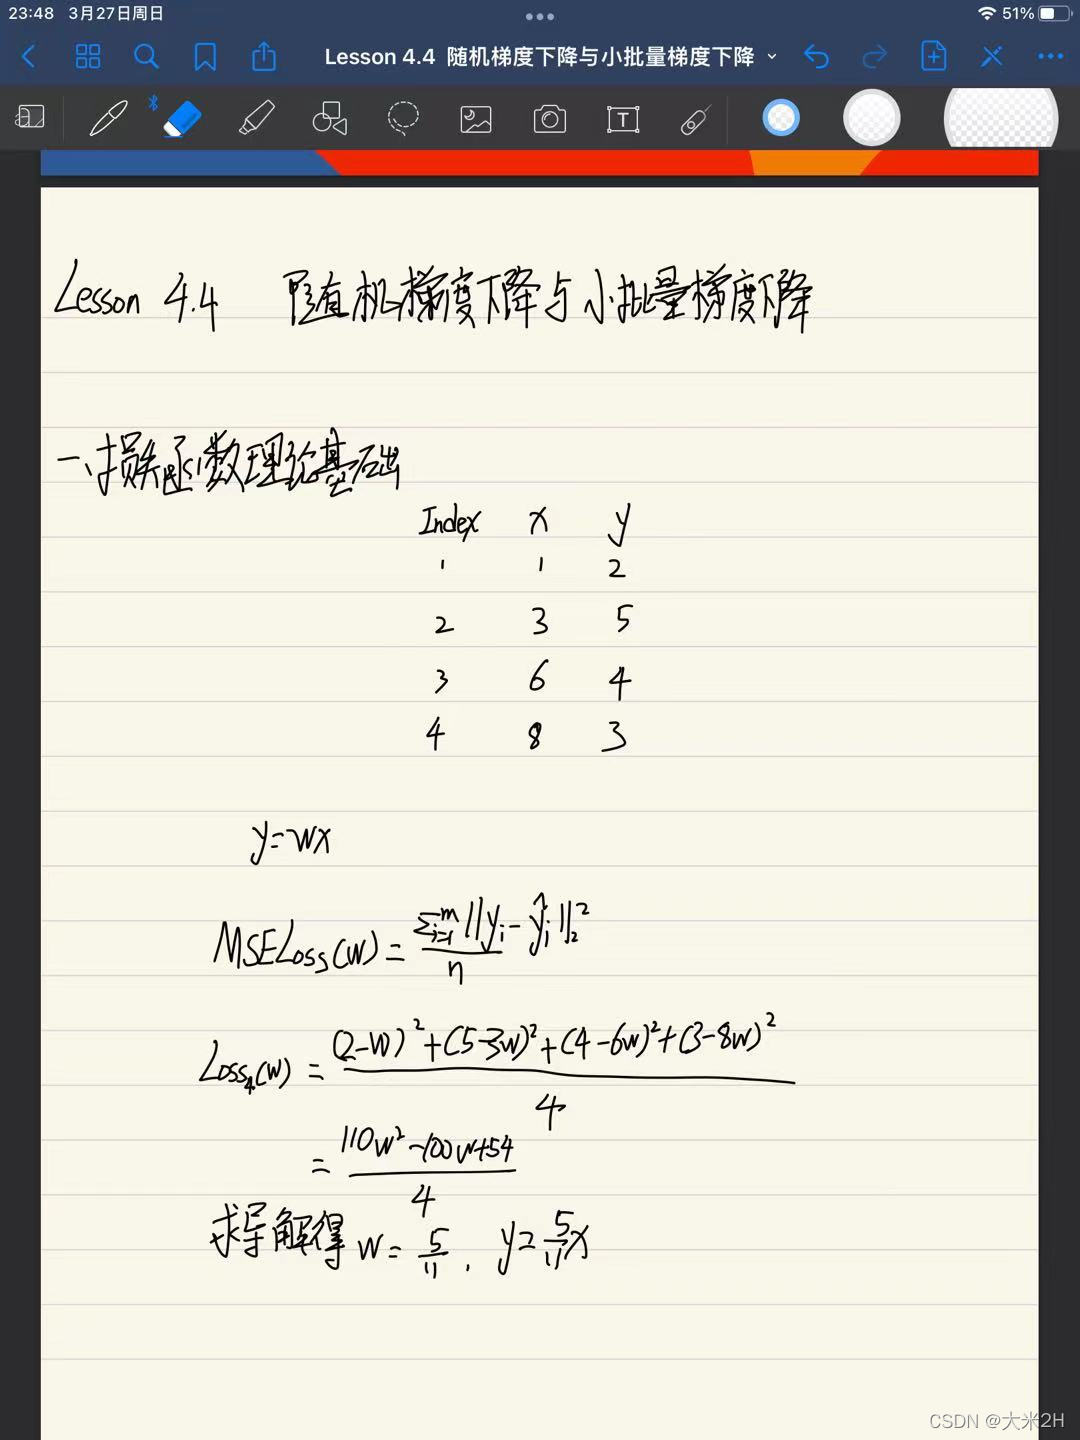 23:48 3月27日周日
51%
Lesson 4.4 随机梯度下降与小批量梯度下降
T
Lesson 4.4 随机梯度下降与小批量梯度下降
一、损失函数理论基础
Index x y
1 1 2
2 3 5
3 6 4
4 8 3
y=wx
MSELoss(w) = \frac{\sum_{i=1}^{m} ||y_i - \hat{y}_i||_2^2}{n}
Loss_4(w) = \frac{(2-w)^2+(5-3w)^2+(4-6w)^2+(3-8w)^2}{4}
= \frac{110w^2-100w+54}{4}
求导解得 w = \frac{5}{11}, y = \frac{5}{11}x
CSDN @大米2H